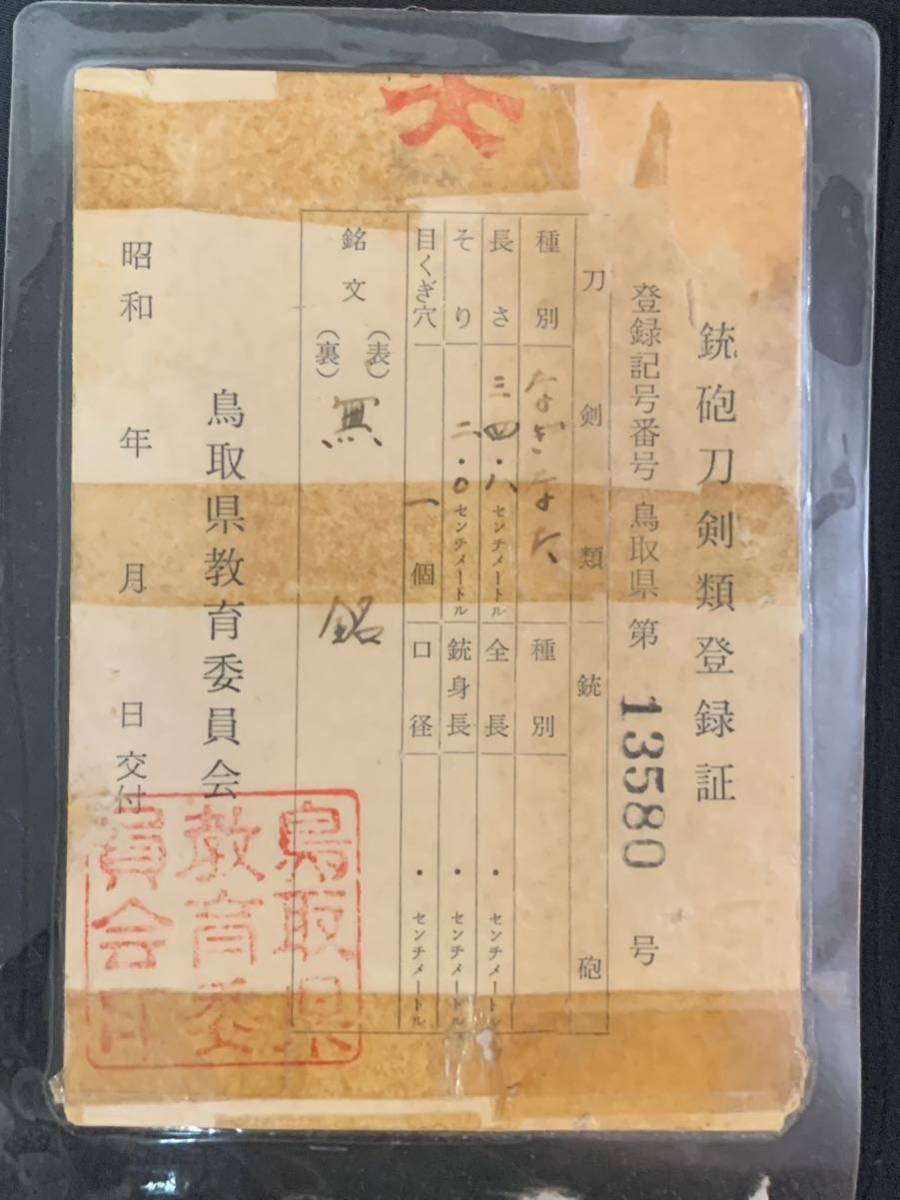 銃砲刀剣類登録証
登録記号番号 鳥取県 第 13580 号
刀剣類 銃砲
種別 なぎなた 種別
長さ 三四・八 センチメートル 全長 ・ センチメートル
そり 二・〇 センチメートル 銃身長 ・ センチメートル
目くぎ穴 一 個 口径 ・ センチメートル
銘文 (表) (裏) 無 銘
鳥取県教育委員会
昭和 年 月 日 交付
鳥取県
教育委
員会印